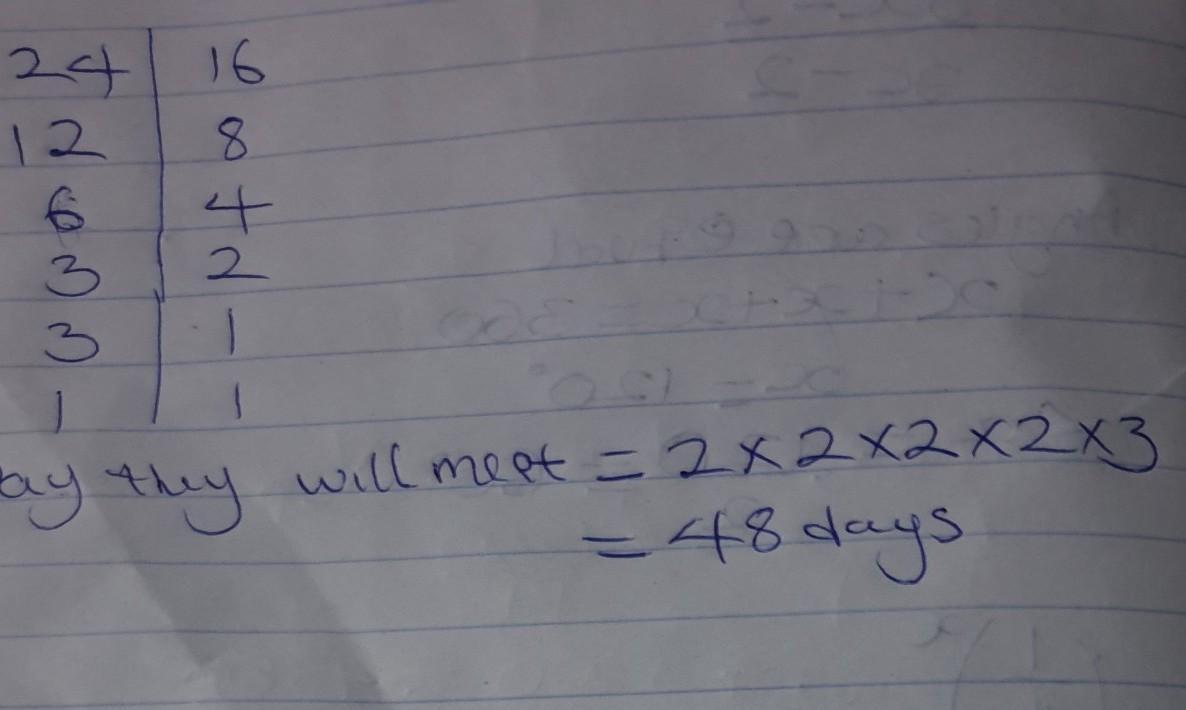 24 | 16
12 | 8
6 | 4
3 | 2
3 | 1
1 | 1
ay they will meet = 2×2×2×2×3
= 48 days